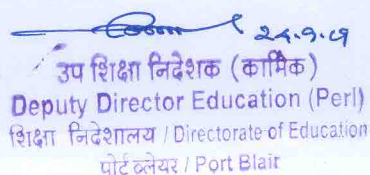 उप शिक्षा निदेशक (कार्मिक)
Deputy Director Education (Perl)
शिक्षा निदेशालय / Directorate of Education
पोर्ट ब्लेयर / Port Blair